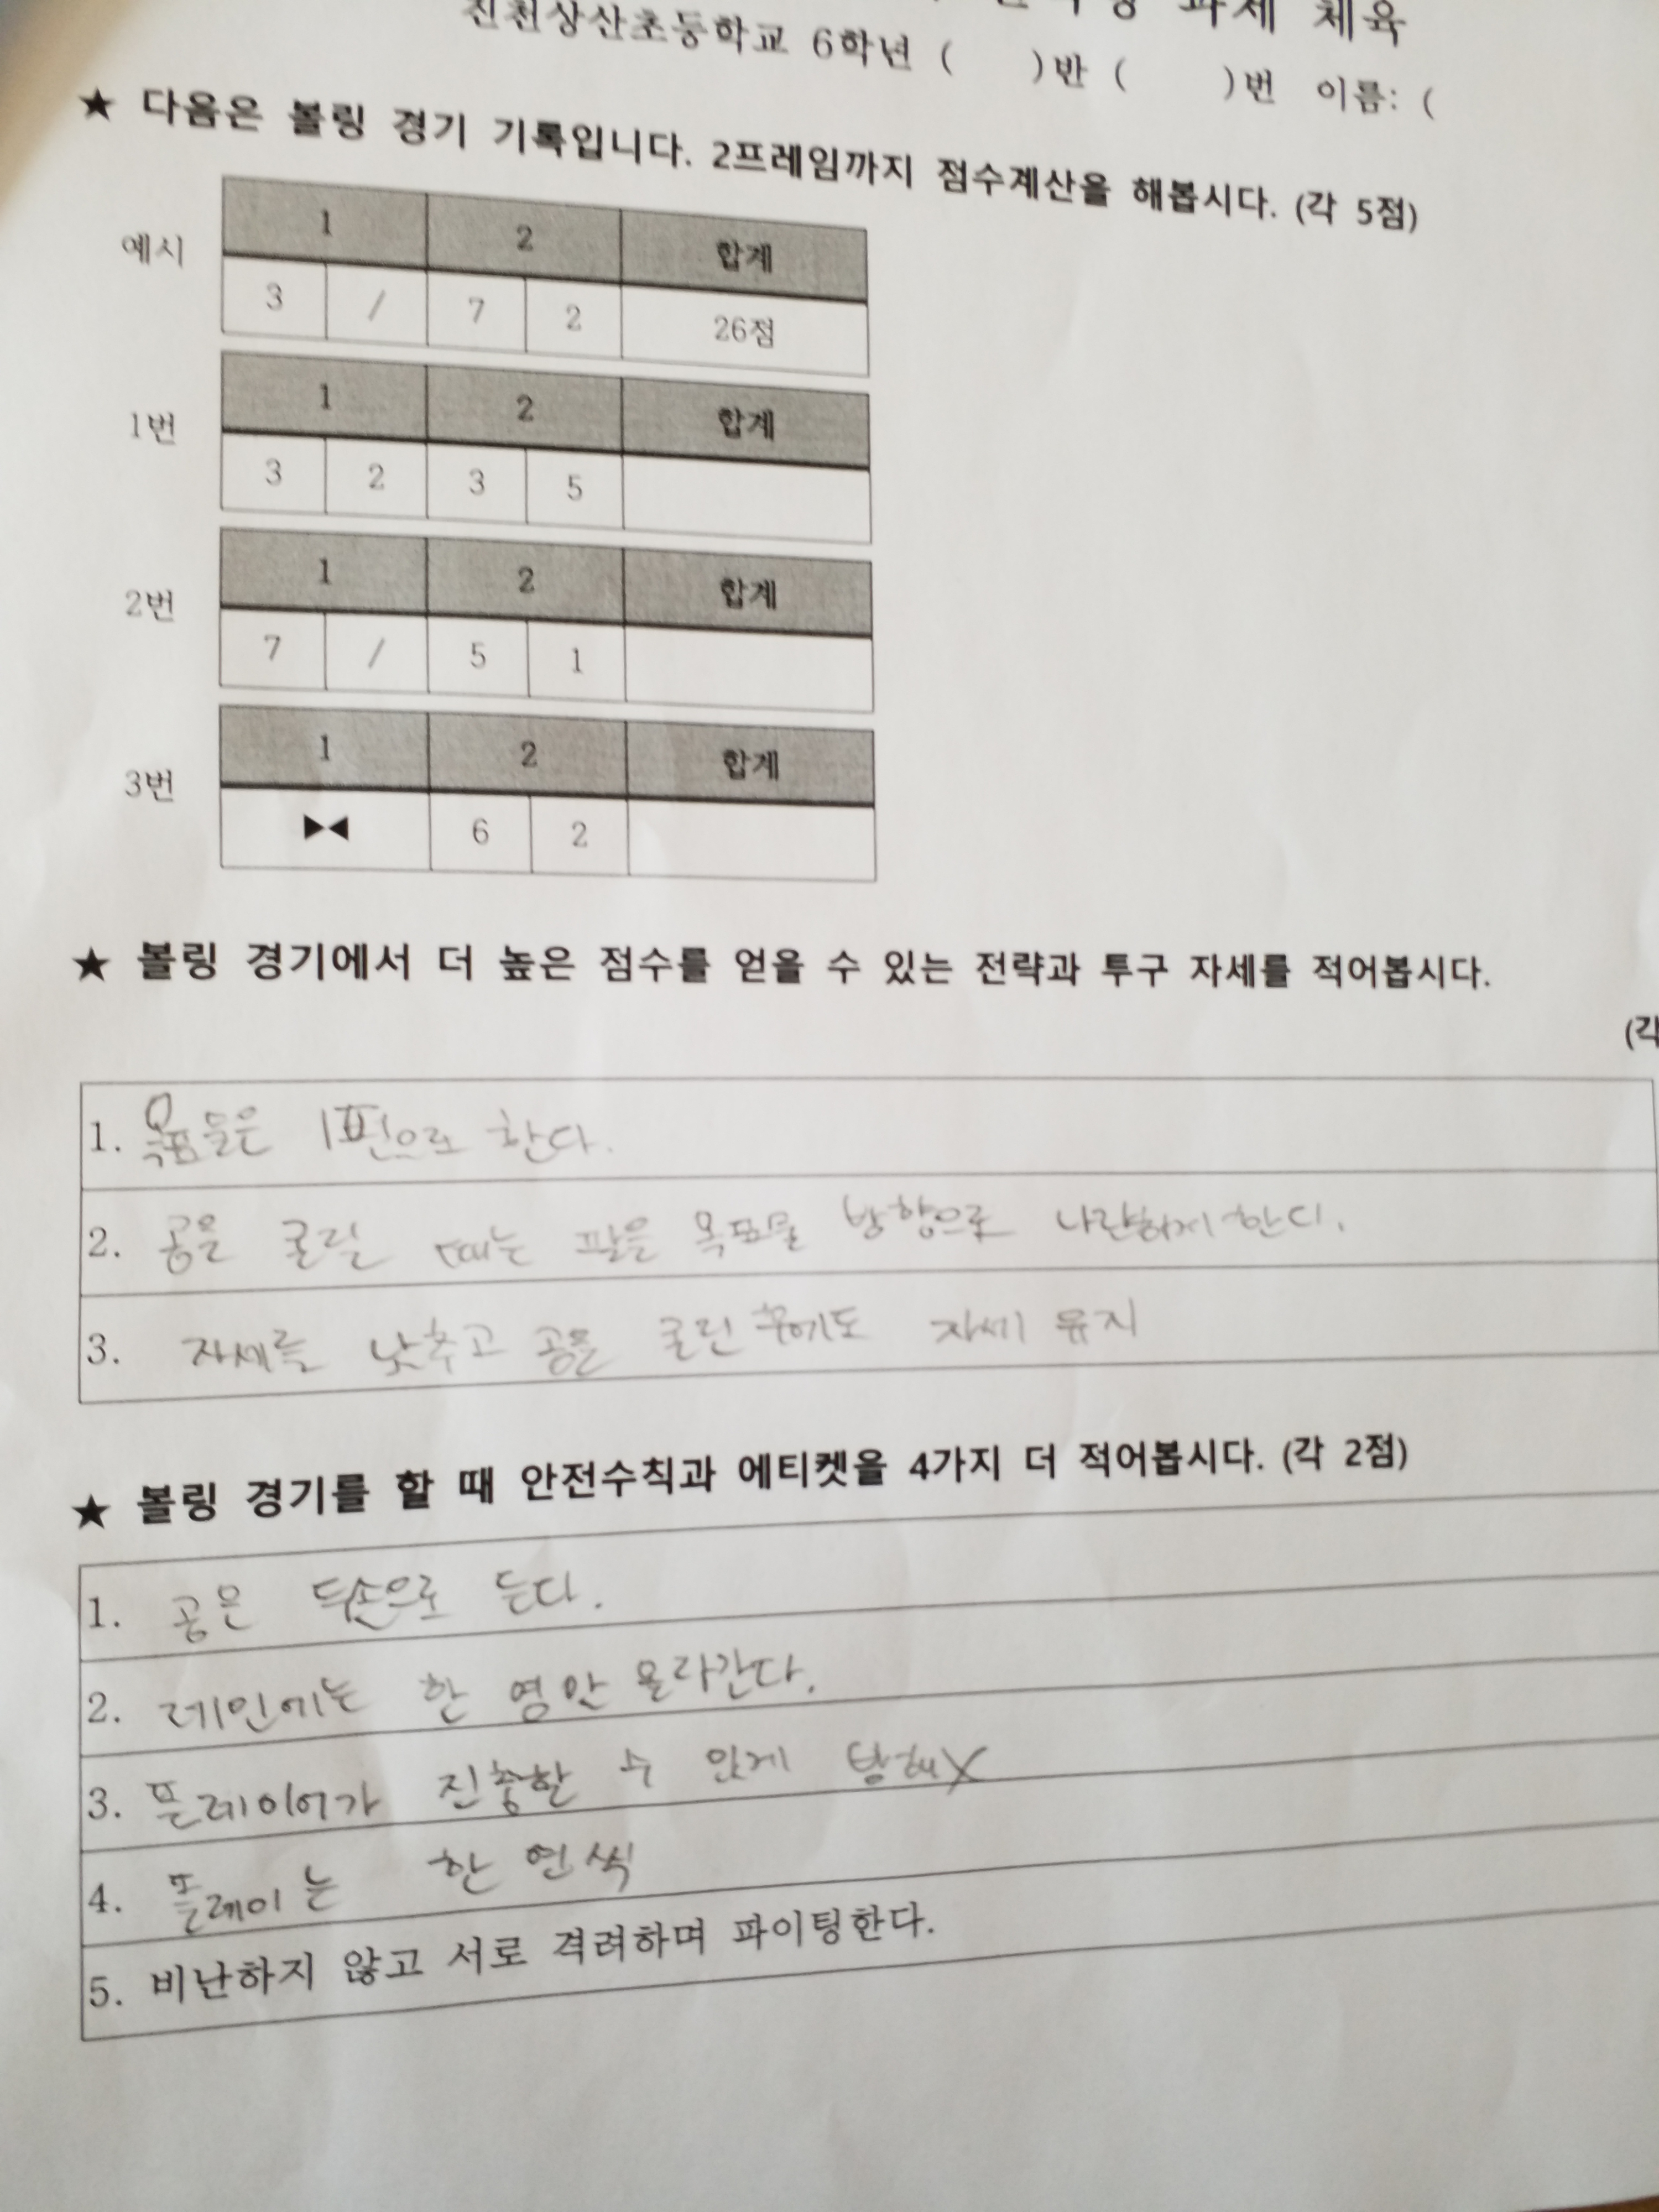 과제 체육
진천상산초등학교 6학년 ( )반 ( )번 이름: (
★ 다음은 볼링 경기 기록입니다. 2프레임까지 점수계산을 해봅시다. (각 5점)
예시
1 2 합계
3 / 7 2 26점
1번
1 2 합계
3 2 3 5
2번
1 2 합계
7 / 5 1
3번
1 2 합계
▶◀ 6 2
★ 볼링 경기에서 더 높은 점수를 얻을 수 있는 전략과 투구 자세를 적어봅시다.
(각
1. 1핀으로 한다.
2. 공을 굴릴 때는 팔을 목표물 방향으로 나란하게 한다.
3. 자세를 낮추고 공을 굴린 후에도 자세 유지
★ 볼링 경기를 할 때 안전수칙과 에티켓을 4가지 더 적어봅시다. (각 2점)
1. 공은 두손으로 든다.
2. 레인에는 한 명만 올라간다.
3. 플레이어가 집중할 수 있게 방해X
4. 플레이는 한 명씩
5. 비난하지 않고 서로 격려하며 파이팅한다.